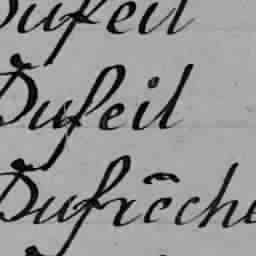 Dufeil
Dufeil
Dufrêche